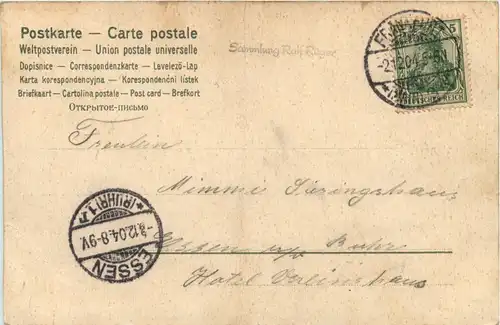 Postkarte — Carte postale
Weltpostverein — Union postale universelle
Dopisnice — Correspondenzkarte — Levelező-Lap
Karta korespondencyjna — Korespondenčni listek
Briefkaart — Cartolina postale — Post card — Brefkort
Открытое-письмо
Sammlung Rolf Rieger
5
-2.12.04
DEUTSCHES REICH
Freulein
Mimmie Sieringshaus
Essen a/d Ruhr
Hotel Vereinshaus
(RUHR) 1
-3.12.04.8-9V.
ESSEN